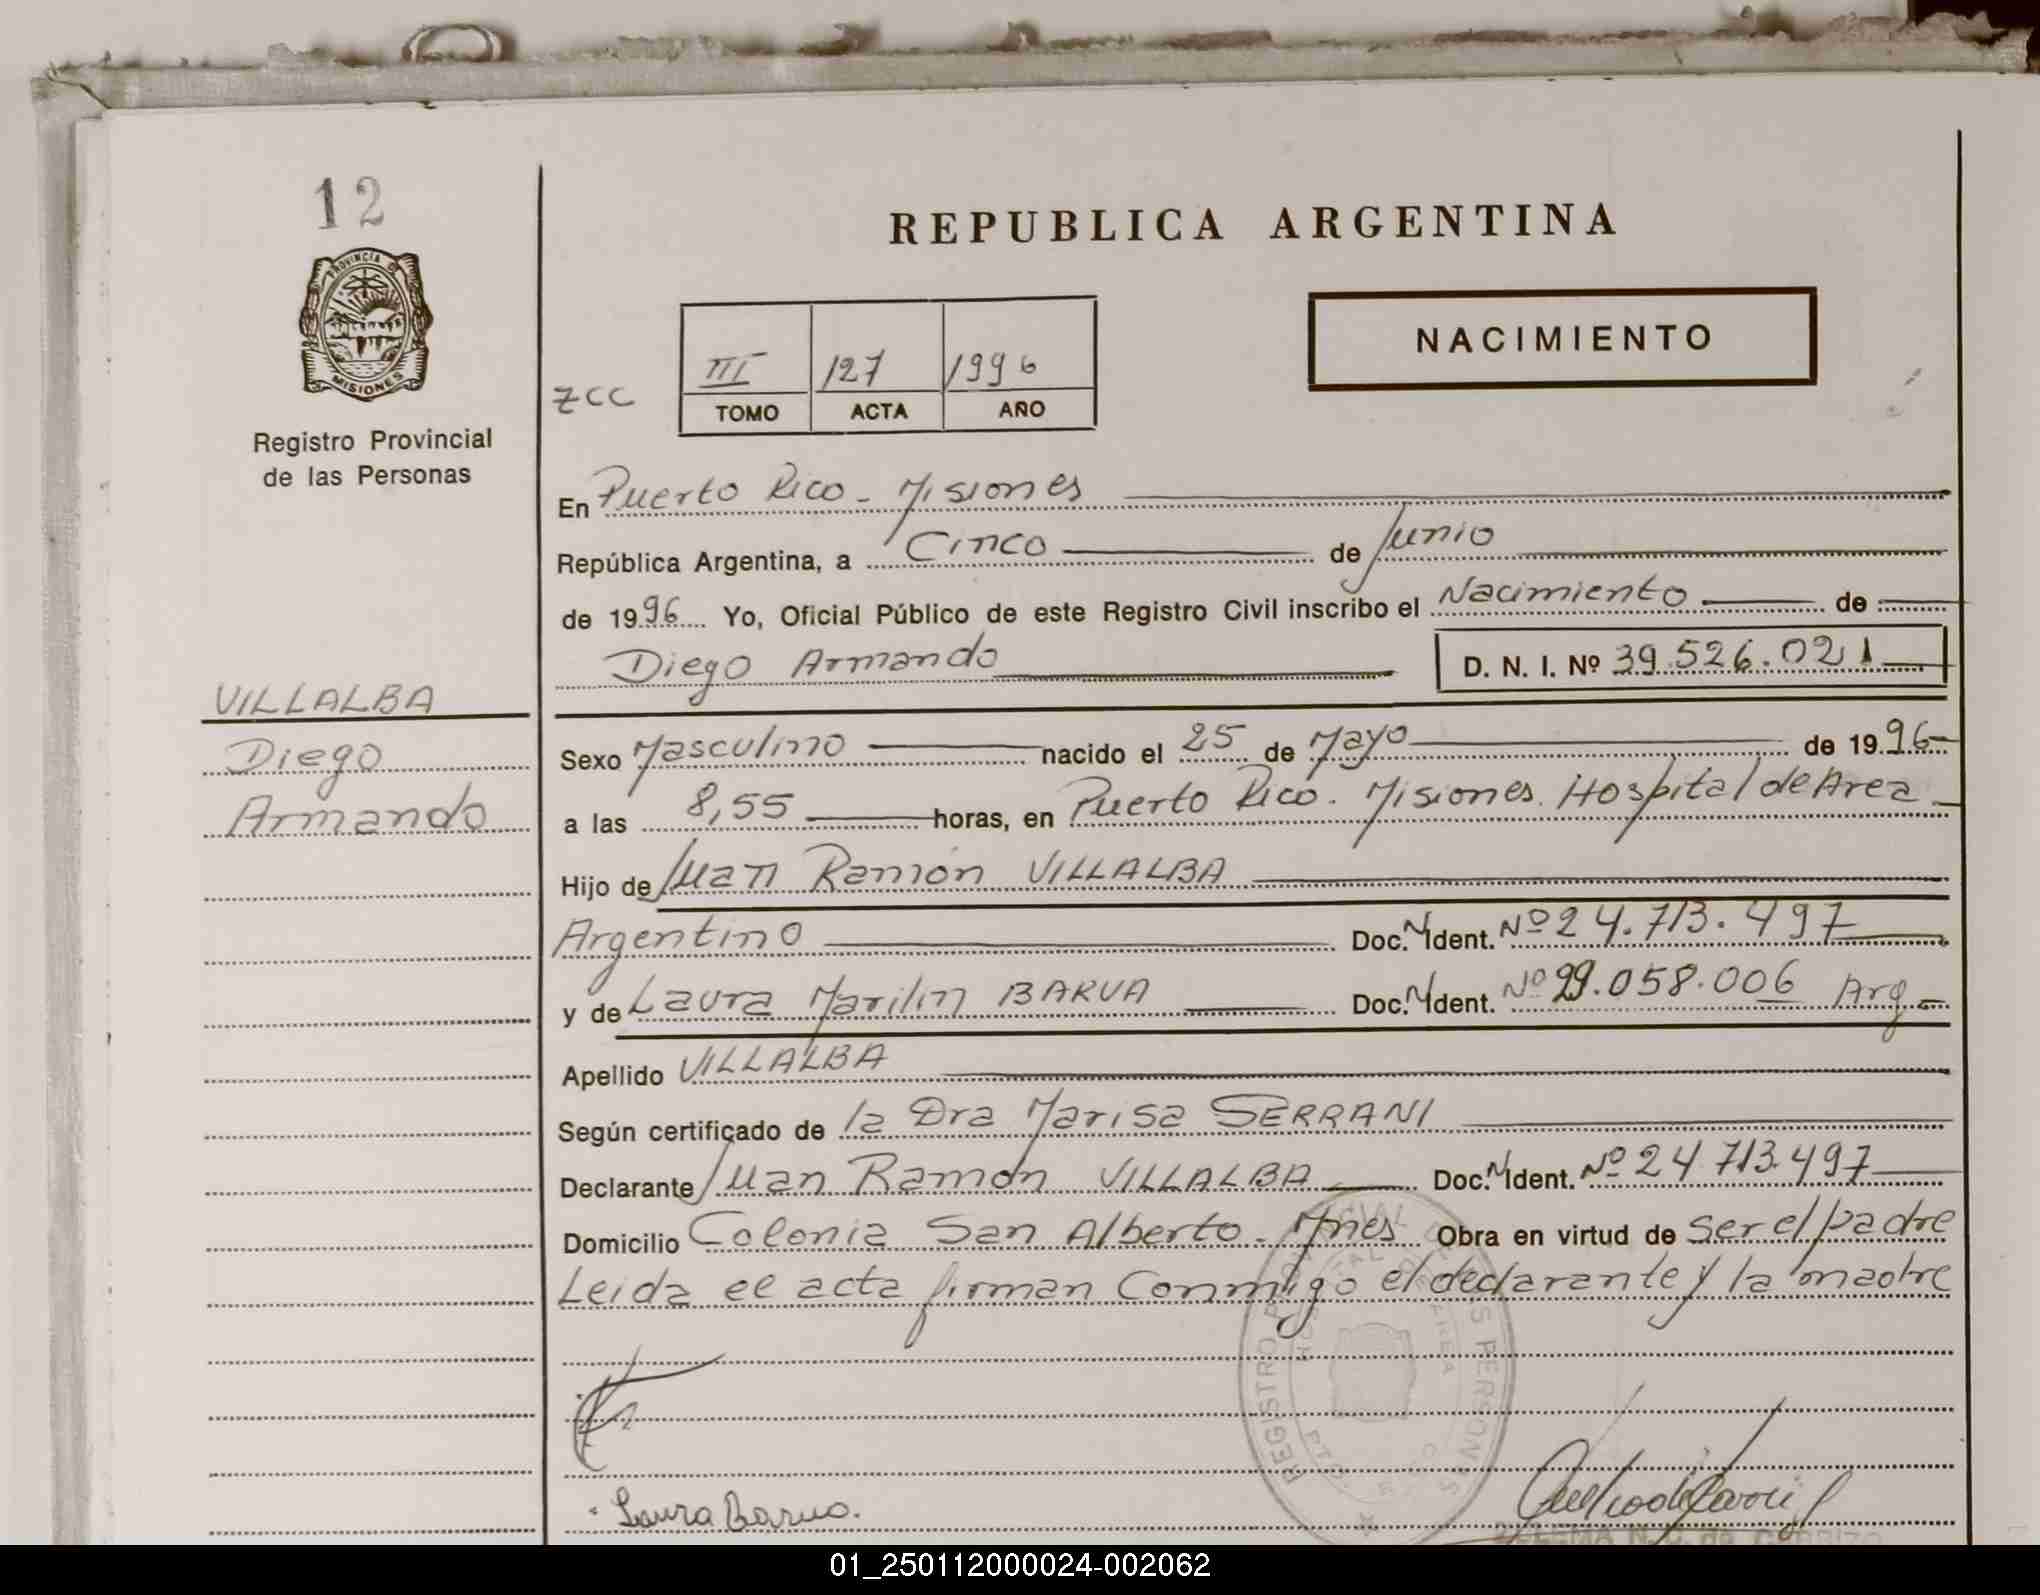 12
PROVINCIA DE
MISIONES
Registro Provincial
de las Personas
VILLALBA
Diego
Armando
REPUBLICA ARGENTINA
NACIMIENTO
ZCC
III 127 1996
TOMO ACTA AÑO
En Puerto Rico - Misiones
República Argentina, a Cinco de Junio
de 1996 Yo, Oficial Público de este Registro Civil inscribo el Nacimiento de
Diego Armando D. N. I. Nº 39.526.021
Sexo Masculino nacido el 25 de Mayo de 1996
a las 8,55 horas, en Puerto Rico. Misiones. Hospital de Area
Hijo de Juan Ramón VILLALBA
Argentino Doc. N. Ident. Nº 24.713.497
y de Laura Marilin BARUA Doc. N. Ident. Nº 29.058.006 Arg
Apellido VILLALBA
Según certificado de la Dra Marisa SERRANI
Declarante Juan Ramón VILLALBA Doc. N. Ident. Nº 24.713.497
Domicilio Colonia San Alberto - Mnes Obra en virtud de ser el padre
Leida el acta firman Conmigo el declarante y la madre
REGISTRO PROVINCIAL DE LAS PERSONAS
HOSPITAL DE AREA
PTO. RICO
Laura Barua.
01_250112000024-002062